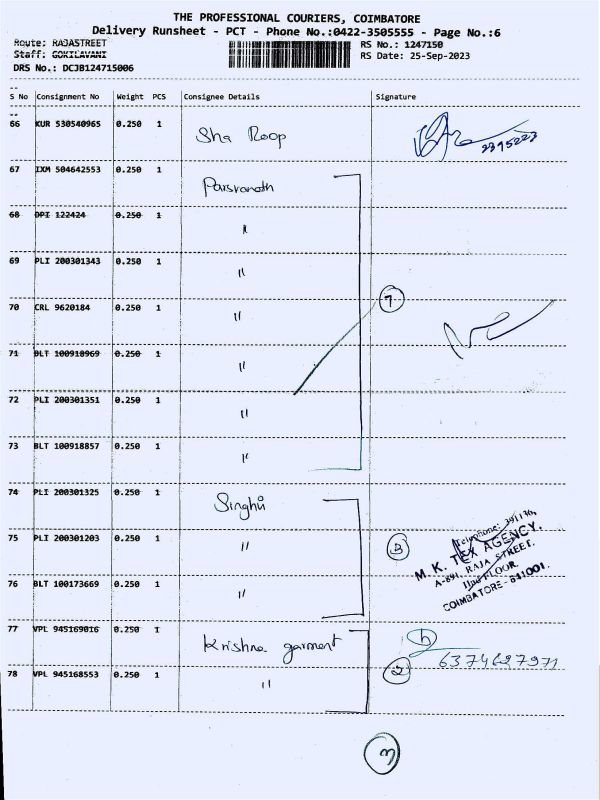 THE PROFESSIONAL COURIERS, COIMBATORE
Delivery Runsheet - PCT - Phone No.:0422-3505555 - Page No.:6
Route: RAJASTREET RS No.: 1247150
Staff: GOKILAVANI RS Date: 25-Sep-2023
DRS No.: DCJB124715006
--
S No Consignment No Weight PCS Consignee Details Signature
--
66 KUR 530540965 0.250 1 Sha Roop
2395223
67 IXM 504642553 0.250 1 Parsvanath
68 DPI 122424 0.250 1 "
69 PLI 200301343 0.250 1 "
70 CRL 9620184 0.250 1 " 7
71 BLT 100910969 0.250 1 "
72 PLI 200301351 0.250 1 "
73 BLT 100918857 0.250 1 "
74 PLI 200301325 0.250 1 Singhii
75 PLI 200301203 0.250 1 " 3
Telephone:
M. K. TEX AGENCY,
A-891, RAJA STREET,
IInd FLOOR,
COIMBATORE - 641001.
76 BLT 100173669 0.250 1 "
77 VPL 945169016 0.250 1 Krishna garment
6374627971
78 VPL 945168553 0.250 1 " 2